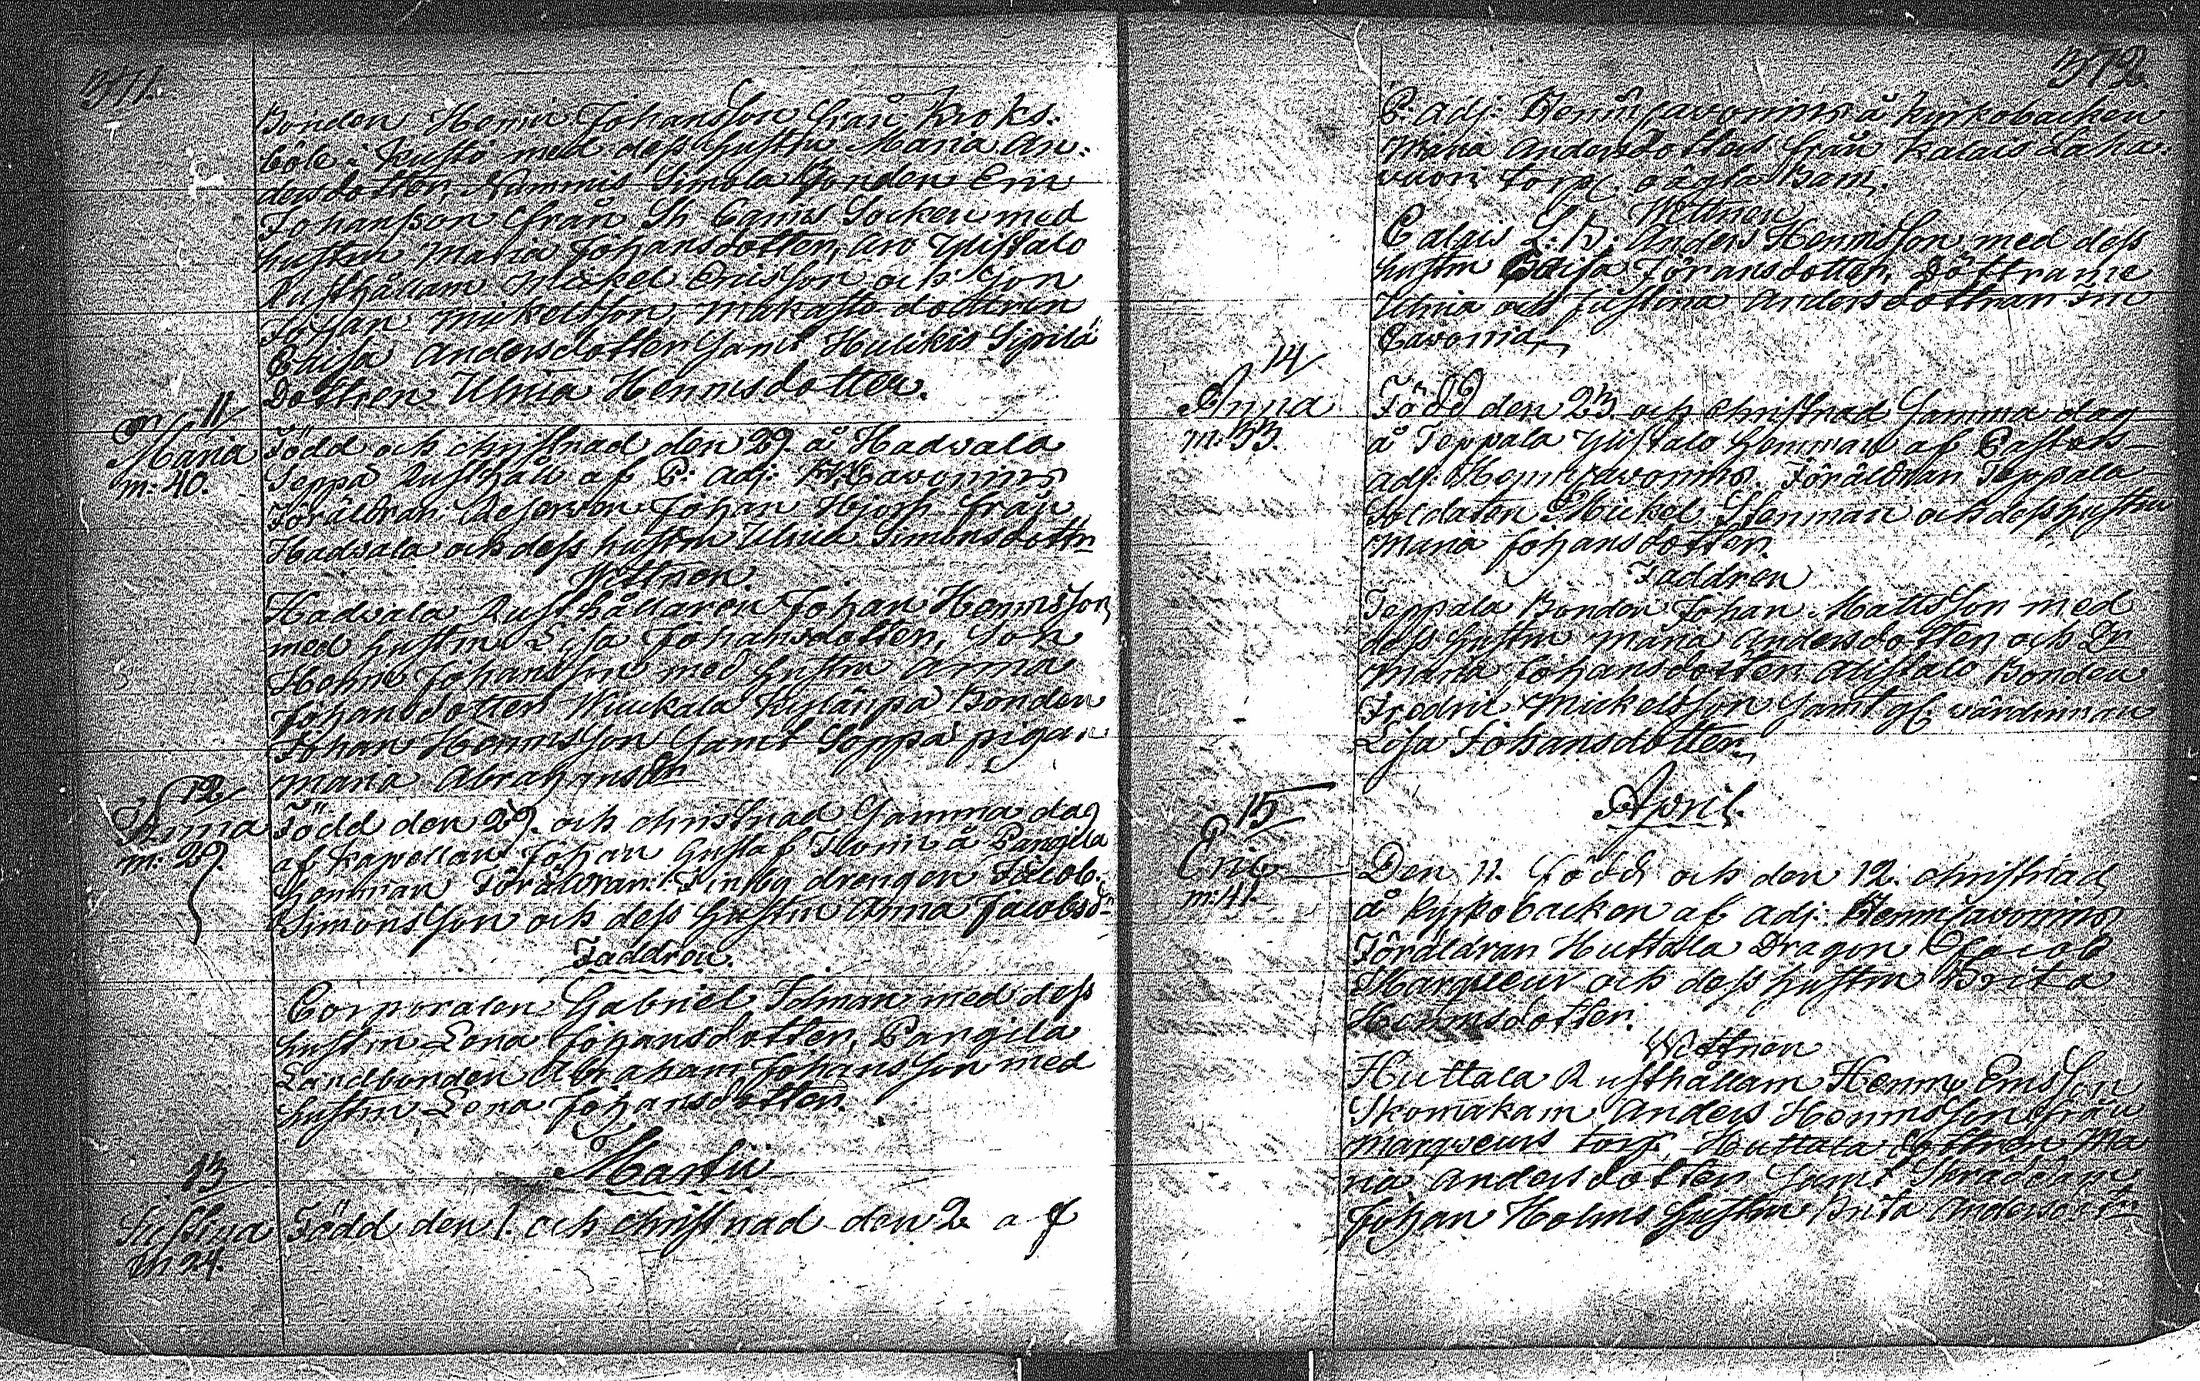 371.
Bonden Henric Johansson från Kroks-
böle i Kustö med dess hustru Maria An-
dersdotter, Nummis Simola Bonden Eric
Johansson från St. Socken med
hustru Maria Johansdotter, Aro Ylistalo
Rusthållarn Mickel Ericsson och Son
Johan Mickelsson, dottren
Caisa Andersdotter samt Hulikas Sipilä
Dottren Ulrica Henricsdotter.
11
Maria
m: 40.
Född och christnad den 29. å Hadvala
Seppä Rusthåll af P: Adj: H. Cavonius
Föräldran Reserven Johan Hjorth från
Hadvala och dess hustru Ulrica Simonsdottr
Wittnen
Hadvala Rusthållaren Johan Henricsson
med hustru Lisa Johansdotter, Son
Henric Johansson med hustru Anna
Johansdotter Kylänpä Bonden
Johan Henricsson samt Seppä pigan
Maria Abrahamsdr
12
Anna
m: 29.
Född den 29. och christnad samma dag
af Kapellan Johan Gustaf Ilonii å Pangila
hemman Föräldran: Finby drengen Jacob
Simonsson och dess hustru Anna Jacobsdr
Faddren
Corporalen Gabriel med dess
hustru Lena Johansdotter, Pangila
Landbonden Abraham Johansson med
hustru Lena Johansdotter.
Martii
13
Justina
m 24.
Född den 1. och christnad den 2 af
372.
P. Adj: Henr: Cavonius å Kyrkobacken
Maria Andersdotters från Kalais Laha-
vuori torp, oägta Barn.
Wittnen
Calais L: B: Anders Henricsson med dess
hustru Caisa Göransdotter, Döttrarne
Ulrica och Justina Andersdöttrar
Cavonia
14
Anna
m: 33.
Född den 23. och christnad samma dag
å Teppala Ylistalo hemman af Pastors
adj: Henr: Cavonius. Föräldran Teppala
Soldaten Mickel Stenman och dess hustru
Maria Johansdotter.
Faddren
Teppala Bonden Johan Mattsson med
dess hustru Maria Andersdotter, och
Maria Johansdotter, Ylistalo Bonden
Fredric Mickelsson samt gl. värdinnan
Lisa Johansdotter
April.
15
Eric
m: 41.
Den 11. född och den 12. christnad
å Kyrkobacken af adj: Henr: Cavonius
Föräldran Huttala Dragon Jacob
Marqveur och dess hustru Brita
Henricsdotter.
Wittnen
Huttala Rusthållarn Henric Ericsson
Skomakarn Anders Henricsson från
Marqveurs torp, Huttala dottren Ma
ria Andersdotter samt Skräddarn
Johan Holms hustru Brita Andersdr